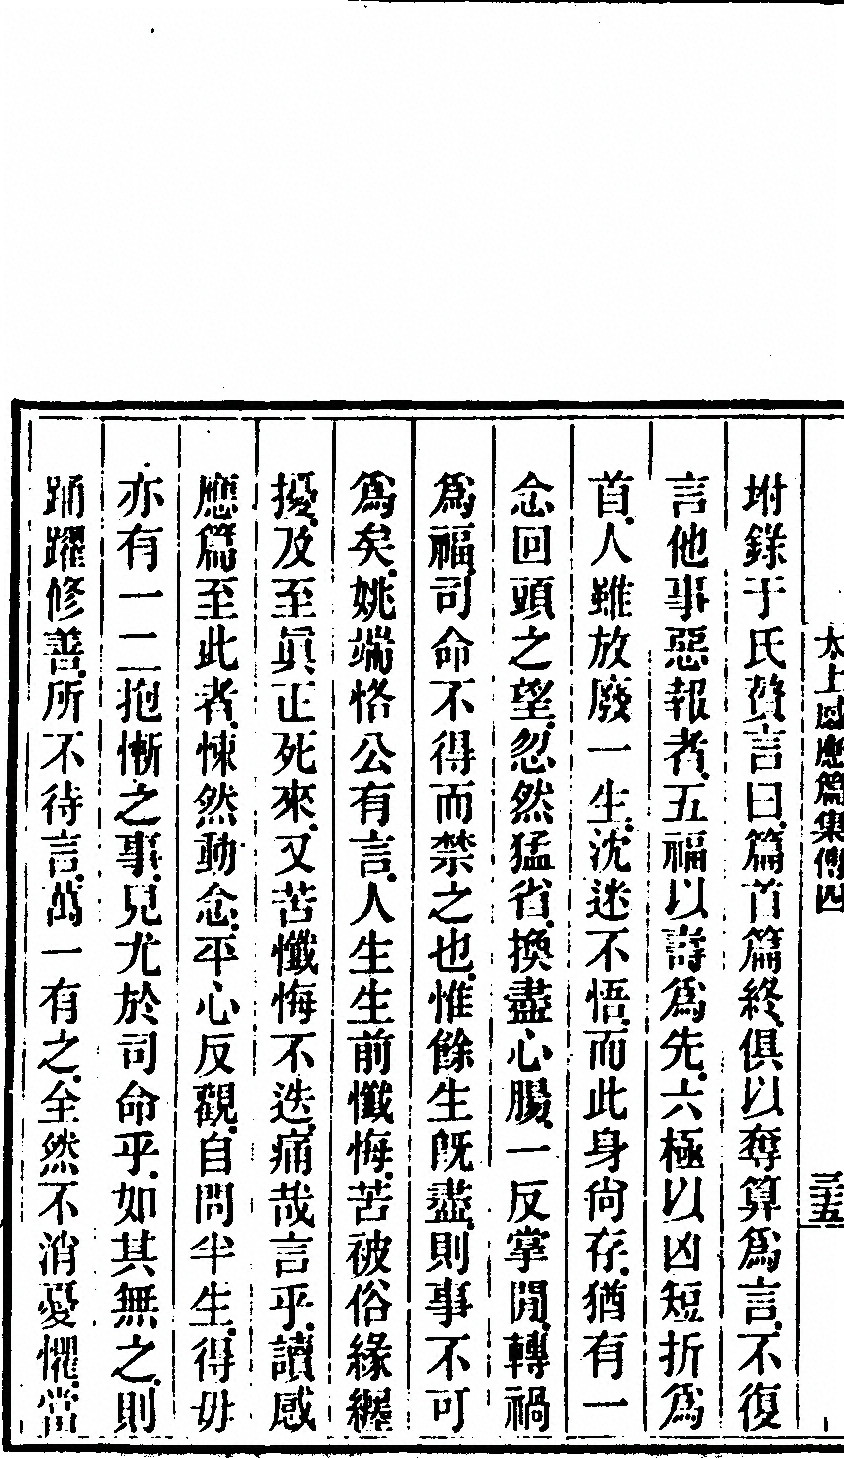 太上感應篇集傳四
三十五
坿錄于氏贅言曰篇首篇終俱以奪算爲言不復
言他事惡報者五福以壽爲先六極以凶短折爲
首人雖放廢一生沈迷不悟而此身尙存猶有一
念回頭之望忽然猛省換盡心腸一反掌閒轉禍
爲福司命不得而禁之也惟餘生旣盡則事不可
爲矣姚端恪公有言人生生前懺悔苦被俗緣纏
擾及至眞正死來又苦懺悔不迭痛哉言乎讀感
應篇至此者悚然動念平心反觀自問半生得毋
亦有一二抱慚之事見尤於司命乎如其無之則
踊躍修善所不待言萬一有之全然不消憂懼當